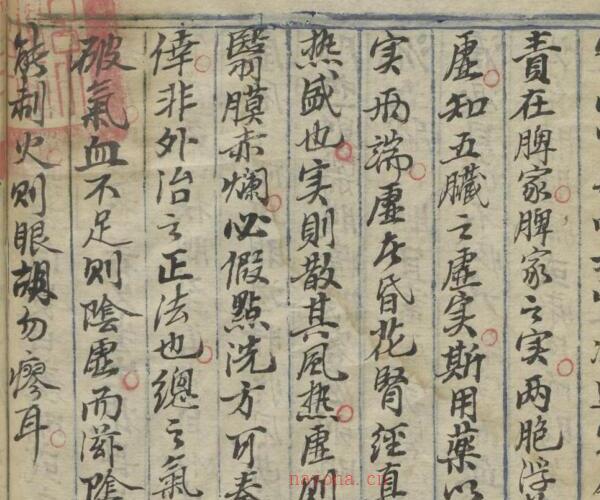 責在脾家脾家之实两胞浮
虚知五臓之虚实斯用藥以
实两端虚者昏花腎経真
热盛也实則散其風热虚則
翳膜赤爛必假點洗方可奏
倖非外治之正法也總之氣
破氣血不足則陰虚而滋陰
能制火則眼胡勿瘳耳
nayona.cn